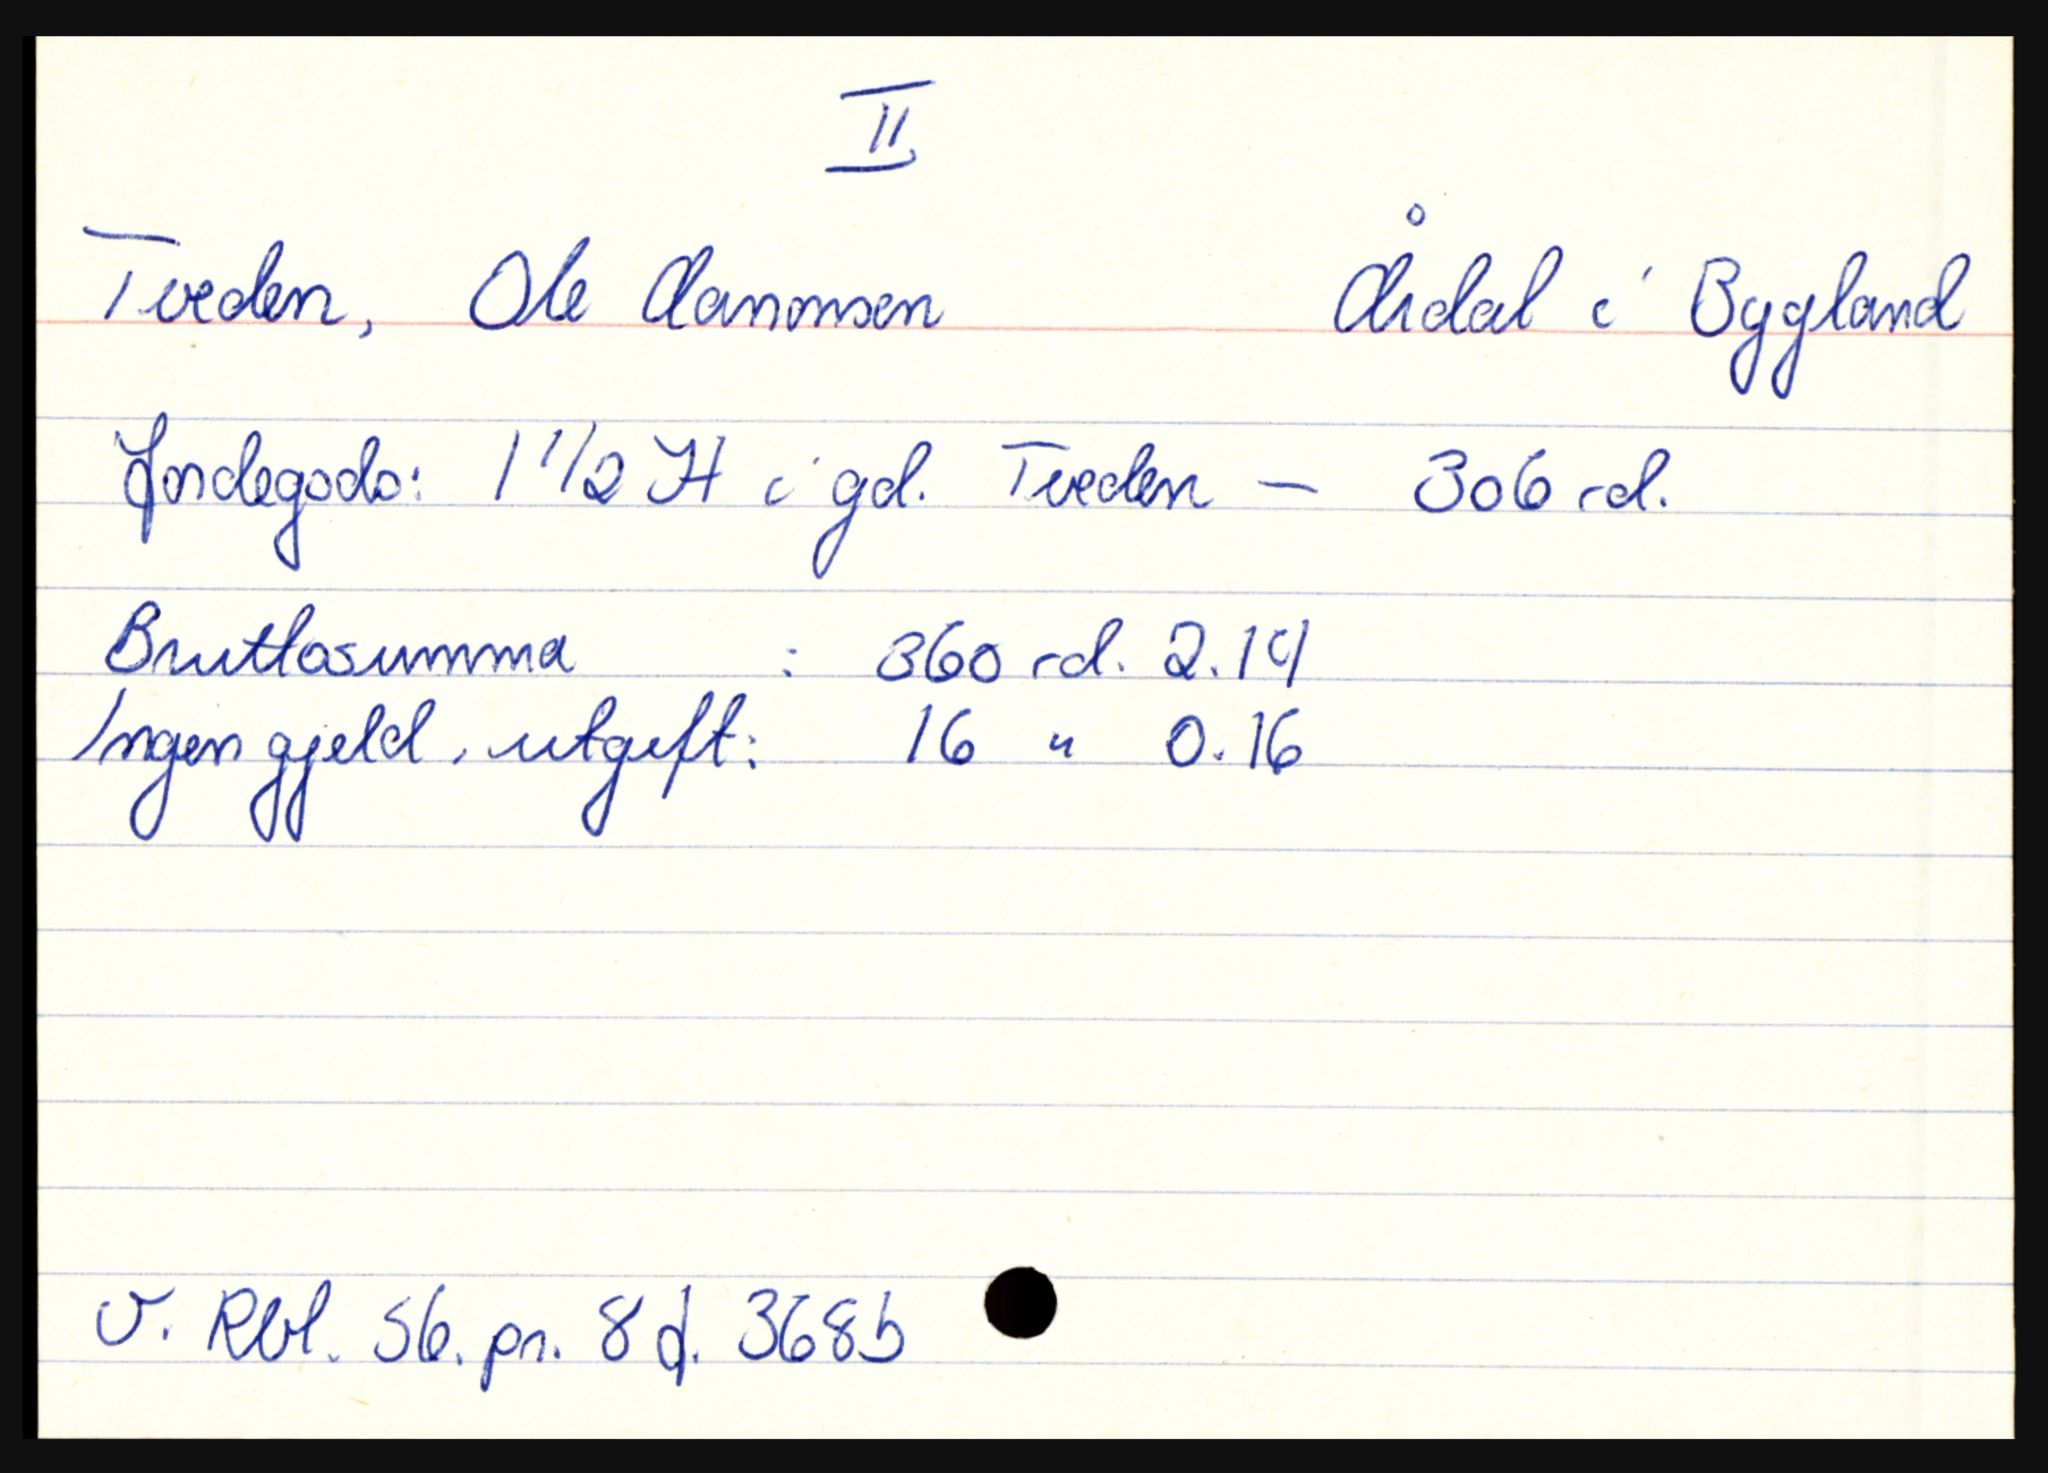 II
Tveden, Ole Aanonsen Årdal i Bygland
Jordegods: 1 1/2 H i gd. Tveden – 306 rd.
Bruttosumma : 360 rd. 2.14
Ingen gjeld, utgift: 16 " 0.16
V. Rbl. Sb. pr. 8 f. 368b